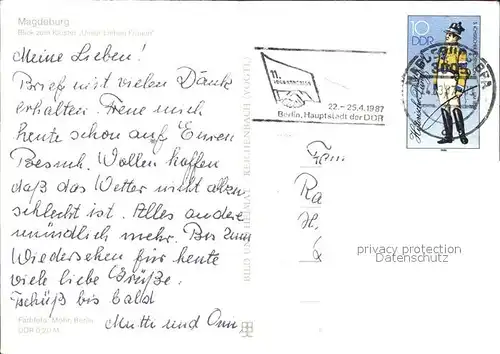 Magdeburg
Blick zum Kloster „Unser Lieben Frauen"
Meine Lieben!
Brief mit vielen Dank
erhalten. Freue mich
heute schon auf Euren
Besuch. Wollen hoffen
daß das Wetter nicht allzu
schlecht ist. Alles andere
mündlich mehr. Bis zum
Wiedersehen für heute
viele liebe Grüße.
Tschüß bis bald
Mutti und
Farbfoto: Mohr, Berlin
DDR 0,20 M
BILD UND HEIMAT REICHENBACH (VOGTL)
11.
22.-25.4.1987
Berlin, Hauptstadt der DDR
10
DDR
Fam
Ra
privacy protection
Datenschutz